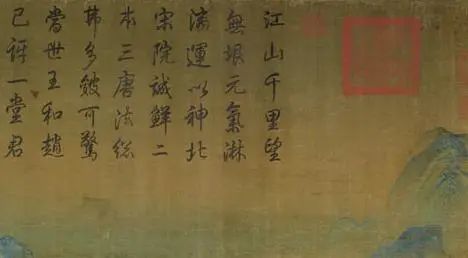 江山千里望
無垠元氣淋
漓運以神北
宋院誠鮮二
本三唐法總
弗多皴可驚
當世王和趙
已訝一堂君